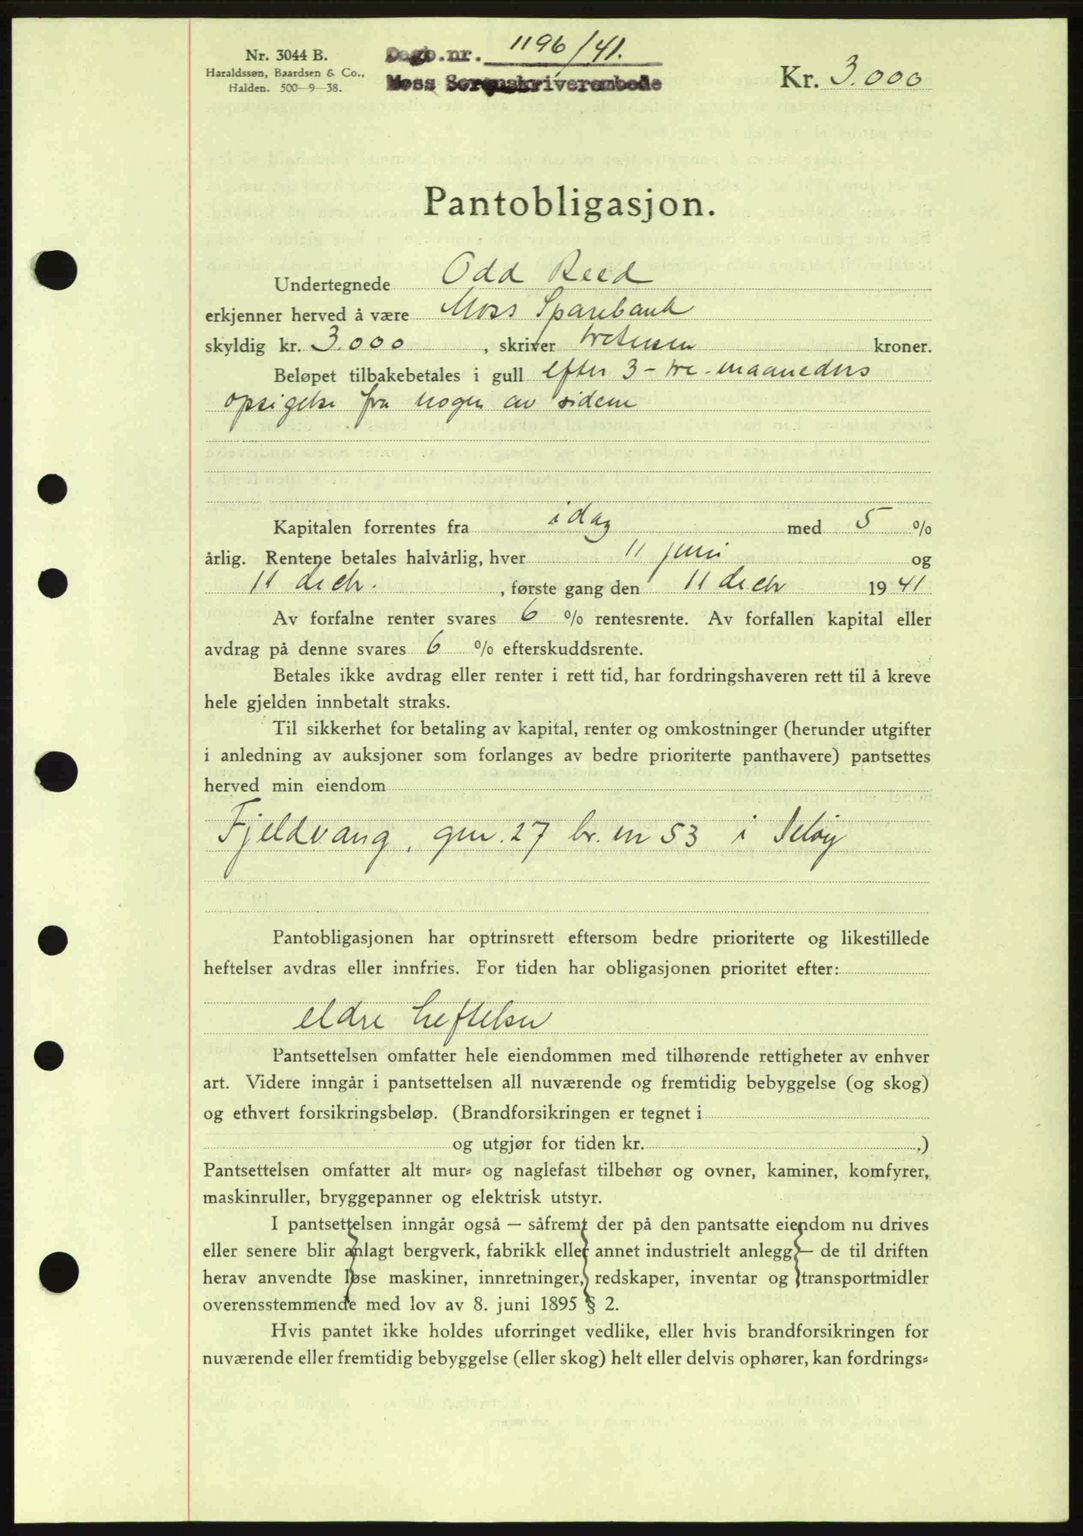 Nr. 3044 B.
Haraldssøn, Baardsen & Co.,
Halden. 500-9-38.
Dagb.nr. 1196/41.
Moss Sorenskriverembede
Kr. 3.000
Pantobligasjon.
Undertegnede Odd Reed
erkjenner herved å være Moss Sparebank
skyldig kr. 3.000, skriver tretusen kroner.
Beløpet tilbakebetales i gull efter 3 - tre - maaneders
opsigelse fra nogen av sidene
Kapitalen forrentes fra idag med 5 %
årlig. Rentene betales halvårlig, hver 11 juni og
11 decbr., første gang den 11 decbr 1941
Av forfalne renter svares 6 % rentesrente. Av forfallen kapital eller
avdrag på denne svares 6 % efterskuddsrente.
Betales ikke avdrag eller renter i rett tid, har fordringshaveren rett til å kreve
hele gjelden innbetalt straks.
Til sikkerhet for betaling av kapital, renter og omkostninger (herunder utgifter
i anledning av auksjoner som forlanges av bedre prioriterte panthavere) pantsettes
herved min eiendom
Fjeldvang, gnr. 27 br. nr 53 i Jeløy
Pantobligasjonen har optrinsrett eftersom bedre prioriterte og likestillede
heftelser avdras eller innfries. For tiden har obligasjonen prioritet efter:
eldre heftelser
Pantsettelsen omfatter hele eiendommen med tilhørende rettigheter av enhver
art. Videre inngår i pantsettelsen all nuværende og fremtidig bebyggelse (og skog)
og ethvert forsikringsbeløp. (Brandforsikringen er tegnet i
og utgjør for tiden kr. .)
Pantsettelsen omfatter alt mur- og naglefast tilbehør og ovner, kaminer, komfyrer,
maskinruller, bryggepanner og elektrisk utstyr.
I pantsettelsen inngår også — såfremt der på den pantsatte eiendom nu drives
eller senere blir anlagt bergverk, fabrikk eller annet industrielt anlegg — de til driften
herav anvendte løse maskiner, innretninger, redskaper, inventar og transportmidler
overensstemmende med lov av 8. juni 1895 § 2.
Hvis pantet ikke holdes uforringet vedlike, eller hvis brandforsikringen for
nuværende eller fremtidig bebyggelse (eller skog) helt eller delvis ophører, kan fordrings-